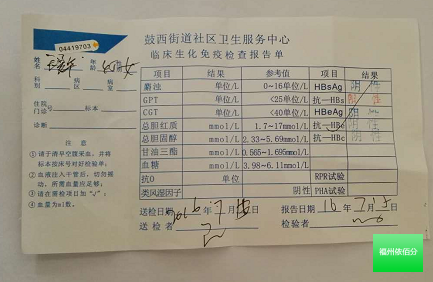 鼓西街道社区卫生服务中心
临床生化免疫检查报告单
04419703
姓名 年龄 性别 女
科别 病区 病室
住院门诊 号 标本
诊断
注 意
①请于清早空腹采血,并将标本按床号对好检验单;
②血液注入干管后,切勿摇动,所需血量应足够;
③请在需检项目如"√";
④血量为ml数。
项目 结果 参考值 项目 结果
麝浊 单位/L 0~16单位/L HBsAg 阴 性
GPT 单位/L <25单位/L 抗—HBs 阴 性
CGT 单位/L <40单位/L HBeAg 阴 性
总胆红质 mmol/L 1.7~17mmol/L 抗—HBe 阴 性
总胆固醇 mmol/L 2.33~5.69mmol/L 抗—HBc 阴 性
甘油三酯 mmol/L 0.565~1.695mmol/L
血糖 mmol/L 3.98~6.11mmol/L
抗O 单位 RPR试验
类风湿因子 阴性 PHA试验
送检日期 2016年7月 日 报告日期 16年7月 日
送检者 检验者
福州依佰分